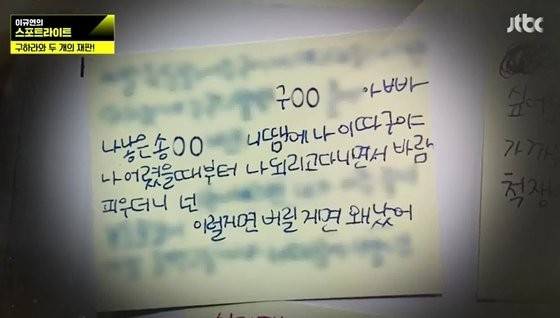 이규연의
스포트라이트
구하라와 두 개의 재판!
jtbc
구OO 아빠
나낳은송OO 니땜에나이따구야
나어렸을때부터 나되리고다니면서 바람
피우더니 넌
이럴게면 버릴게면 왜낳았어
싶어